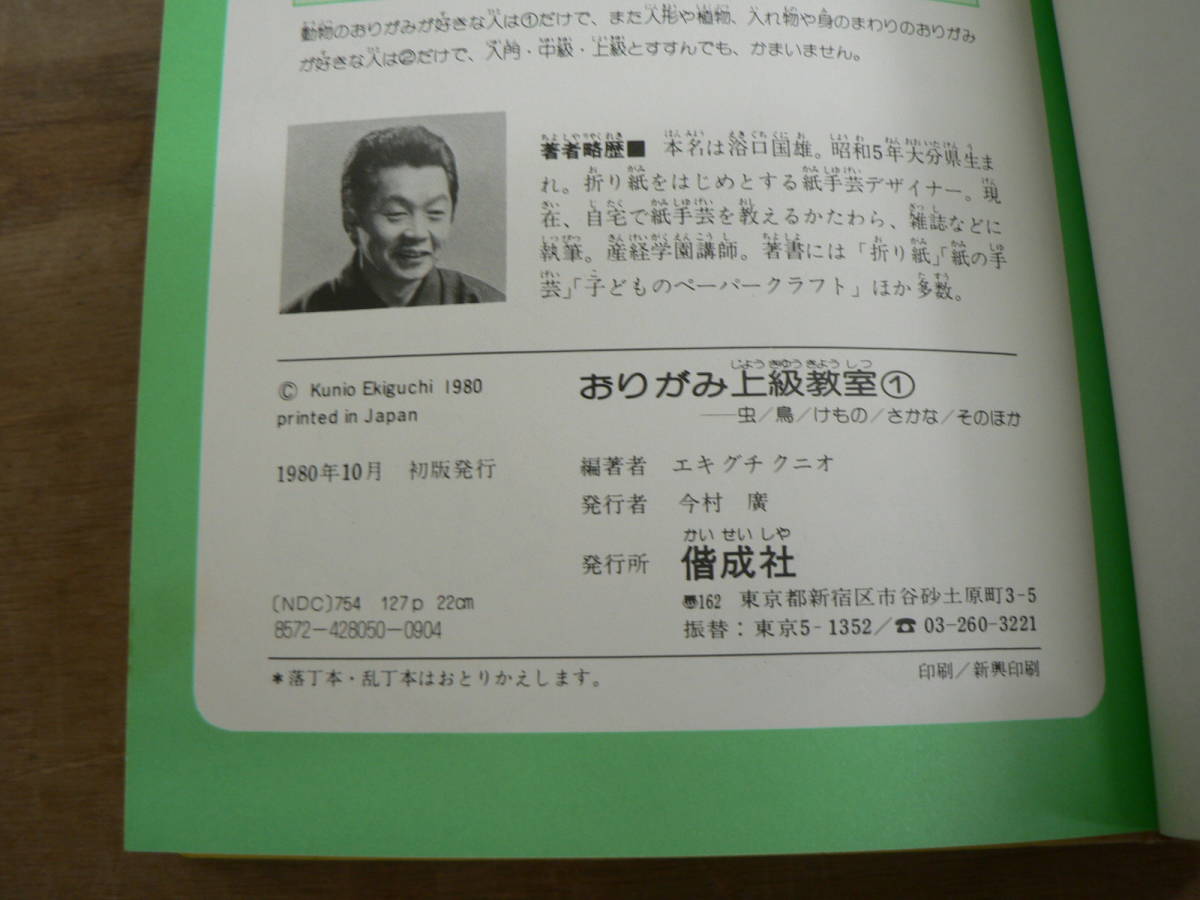 動物のおりがみが好きな人は①だけで、また人形や植物、入れ物や身のまわりのおりがみ
が好きな人は②だけで、入門・中級・上級とすすんでも、かまいません。
著者略歴■ 本名は浴口国雄。昭和5年大分県生ま
れ。折り紙をはじめとする紙手芸デザイナー。現
在、自宅で紙手芸を教えるかたわら、雑誌などに
執筆。産経学園講師。著書には「折り紙」「紙の手
芸」「子どものペーパークラフト」ほか多数。
© Kunio Ekiguchi 1980
printed in Japan
1980年10月 初版発行
〔NDC〕754 127p 22cm
8572-428050-0904
じょうきゅうきょうしつ
おりがみ上級教室①
——虫/鳥/けもの/さかな/そのほか
編著者 エキグチクニオ
発行者 今村 廣
かいせいしゃ
発行所 偕成社
〠162 東京都新宿区市谷砂土原町3-5
振替：東京5-1352/☎03-260-3221
*落丁本・乱丁本はおとりかえします。
印刷/新興印刷